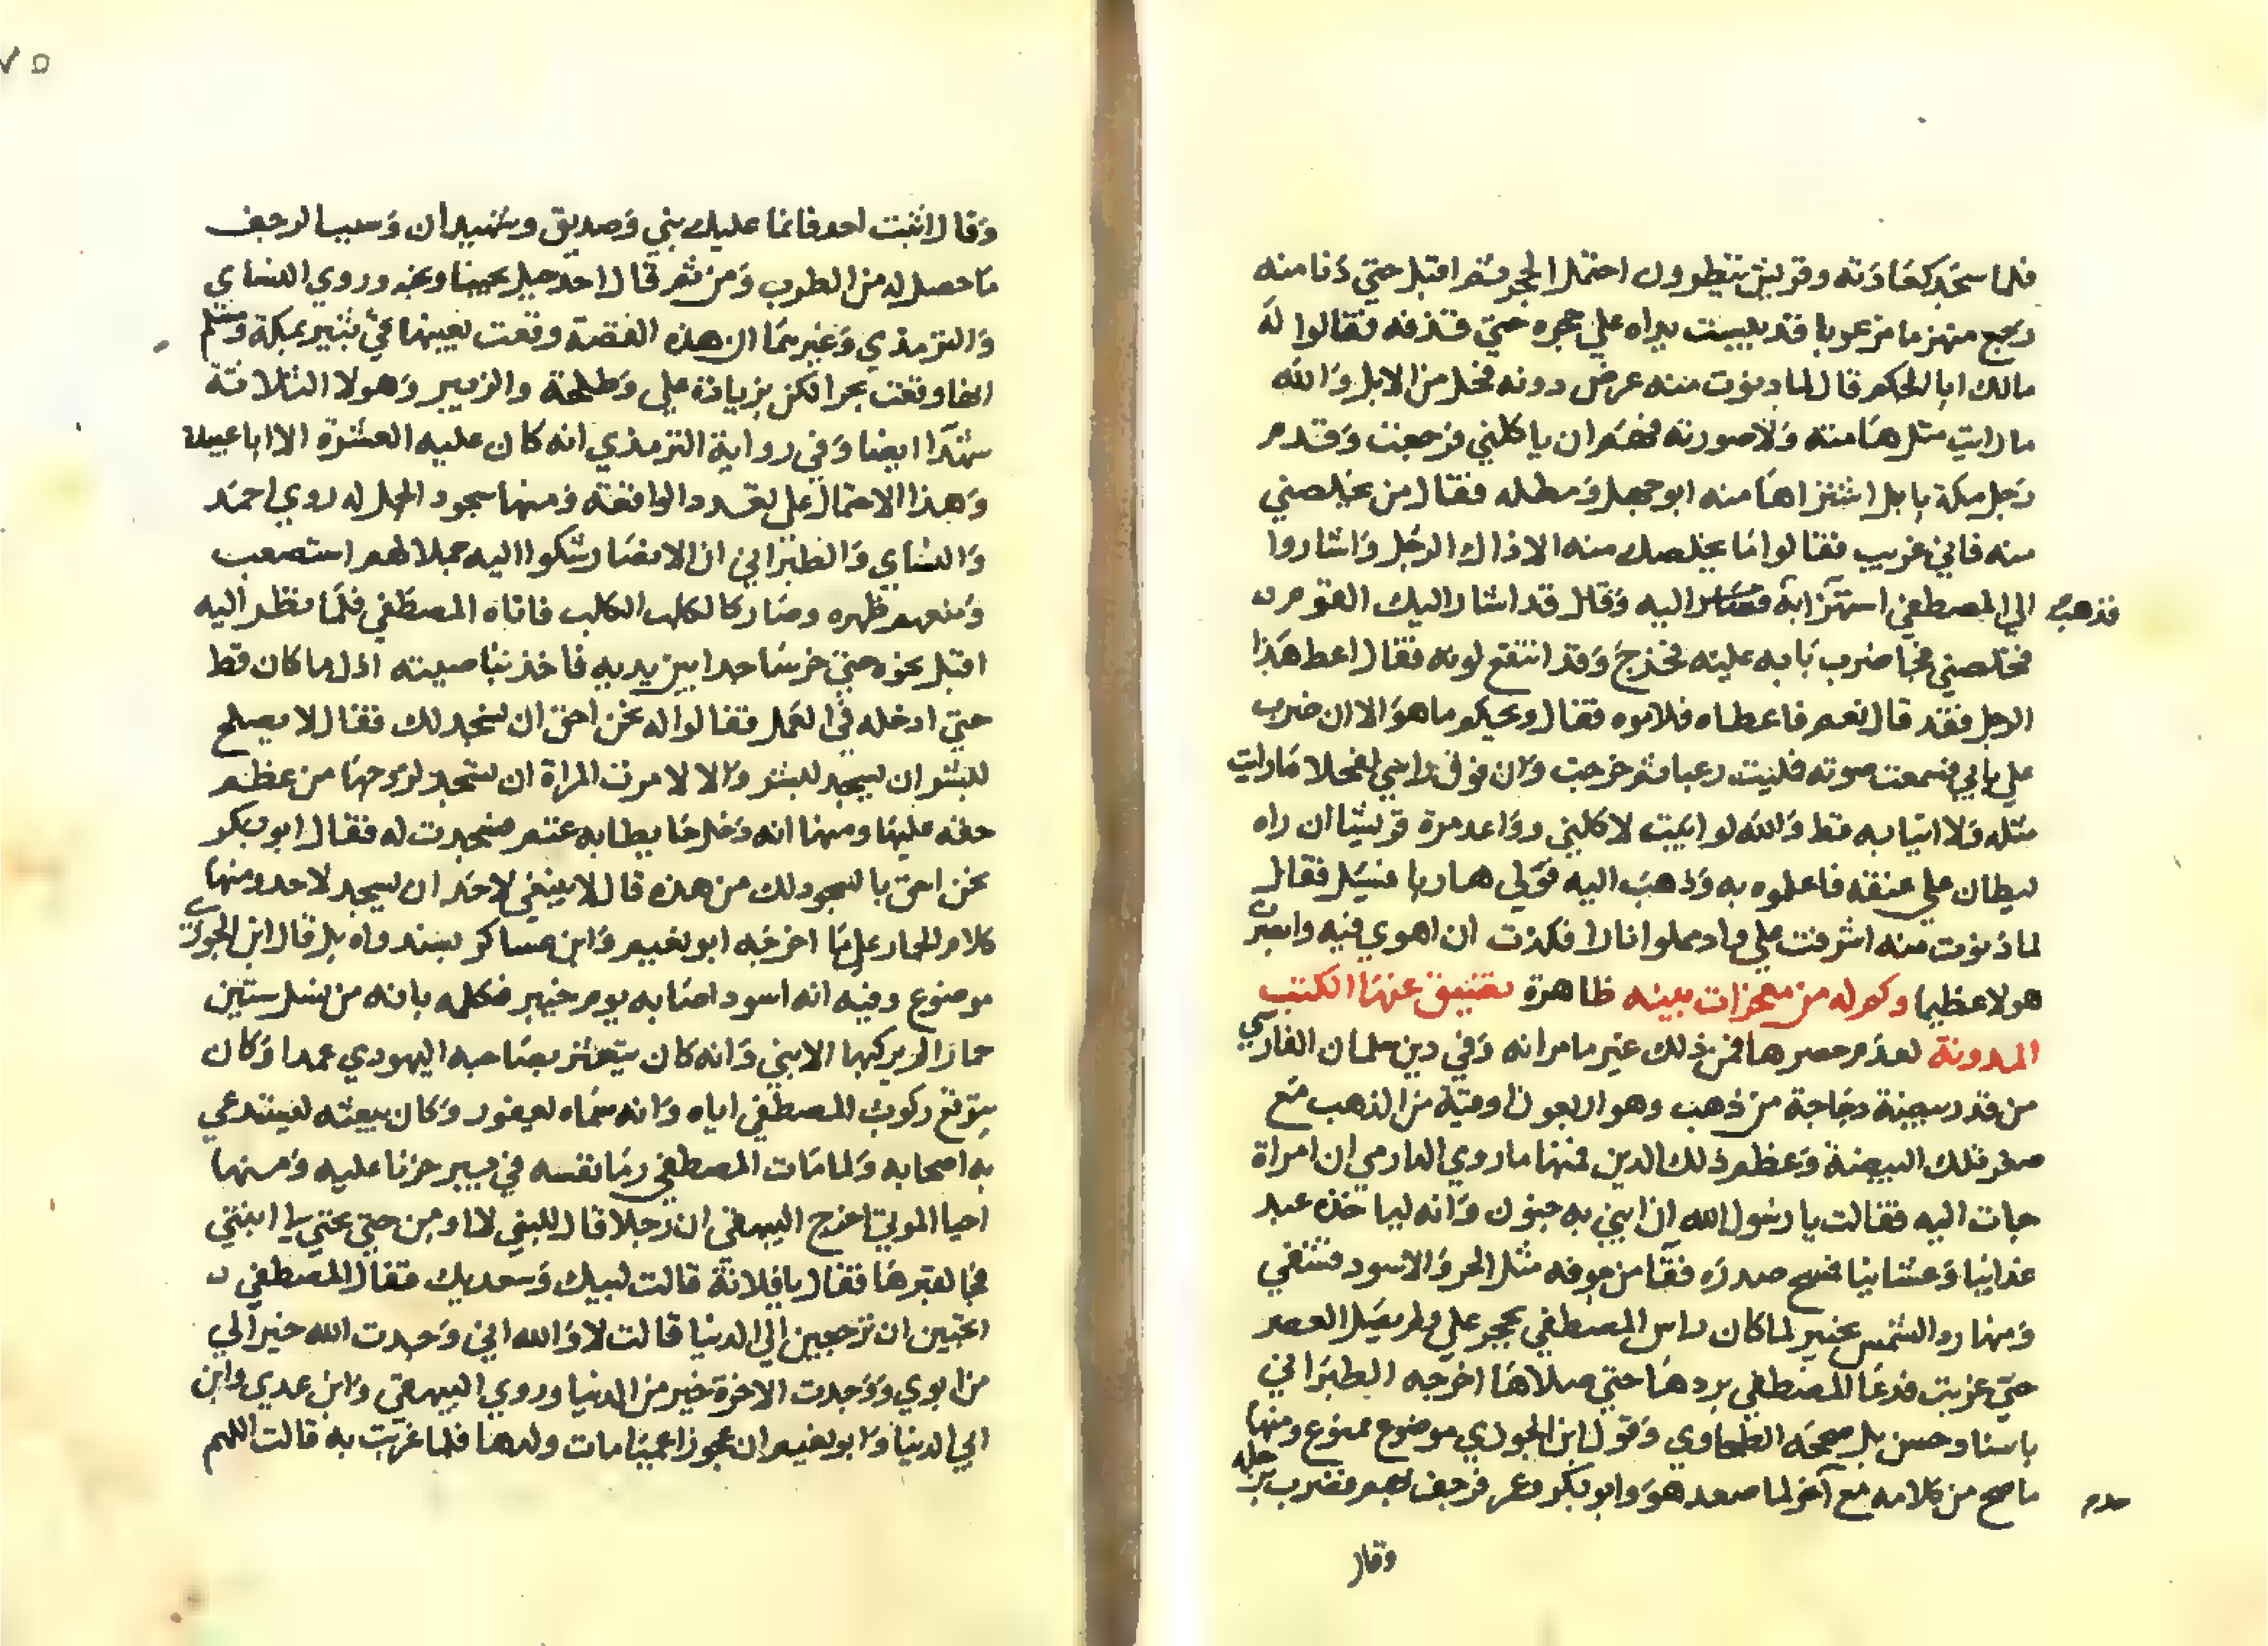 فلما سجد كعادته وقريش ينظرون احتمل الحجر ثم اقبل حتي دنا منه
رجع منهزما مرعوبا قد يبست يداه علي حجره حتي قذفه فقالوا له
مالك ابا الحكم قال لما دنوت منه عرض دونه فحل من الابل والله
ما رايت مثل هامته ولا صورته فهم ان ياكلني فرجعت وقدم
رجل مكة بابل اشتراها منه ابو جهل ومطله فقال من يخلصني
منه فاني غريب فقالوا ما يخلصك منه الا ذاك الرجل واشاروا
الي المصطفي استهزا به فذهب اليه وقال قد اشار اليك القوم ان
تخلصني فجا ضرب بابه عليه فخرج وقد انتقع لونه فقال اعط هذا
الرجل فقد قال نعم فاعطاه فلاموه فقال ويحكم ما هو الا ان ضرب
علي بابي فسمعت صوته فمليت رعبا ثم خرجت وان فوق راسي لفحلا ما رايت
مثله ولا انيابه قط والله لو ابيت لاكلني وواعد مرة قريشا ان راه
ليطان علي عنقه فاعلموه به وذهب اليه فولي هاربا فسيل فقال
لما دنوت منه اشرفت علي واد مملوا نارا فكدت ان اهوي فيه وابصرت
هولا عظيما وكم له من معجزات بينه ظاهرة تضيق عنها الكتب
المدونة لعدم حصرها فمن ذلك غير ما مر انه وفي دين سلمان الفارسي
من قدر بيضة دجاجة من ذهب وهو اربعون اوقية من الذهب مع
صغر تلك البيضة وعظم ذلك الدين فمنها ما روي الدارمي ان امراة
جات اليه فقالت يا رسول الله ان ابني به جنون وانه لياخذه عند
غدائنا وعشائنا فمسح صدره فقا من جوفه مثل الجرو الاسود فشفي
ومنها رد الشمس بخيبر لما كان راس المصطفي بحجر علي ولم يصل العصر
حتي غربت فدعا المصطفي بردها حتي صلاها اخرجه الطبراني
باسناد حسن بل صححه الطحاوي وقول ابن الجوزي موضوع ممنوع ومنها
ما صح من كلامه مع احد لما صعد هو وابو بكر وعمر فرجف بهم فضرب برجله
وقال
وقال اثبت احد فانما عليك نبي وصديق وشهيدان وسبب الرجف
ما حصل له من الطرب ومن ثم قال احد جبل يحبنا ونحبه وروي النساي
والترمذي وغيرهما ان هذه القصة وقعت بعينها علي ثبير بمكة ومسلم
انها وقعت بحرا لكن بزيادة علي وطلحة والزبير وهولا الثلاثة
شهدا ايضا وفي رواية الترمذي انه كان عليه العشرة الا ابا عبيدة
وهذا الاحتمال علي تعدد الواقعة ومنها سجود الجمل له روي احمد
والنساي والطبراني ان الانصار شكوا اليه جملا لهم استصعب
ومنعهم ظهره وصار كالكلب الكلب فاتاه المصطفي فلما نظر اليه
اقبل نحوه حتي خر ساجدا بين يديه فاخذ بناصيته اذل ما كان قط
حتي ادخله في العمل فقالوا له نحن احق ان نسجد لك فقال لا يصلح
للبشر ان يسجد للبشر والا لامرت المراة ان تسجد لزوجها من عظم
حقه عليها ومنها انه دخل حايطا به غنم فسجدت له فقال ابو بكر
نحن احق بالسجود لك من هذه قال لا ينبغي لاحد ان يسجد لاحد ومنها
كلام الحمار علي ما اخرجه ابو نعيم وابن عساكر بسند واه بل قال ابن الجوزي
موضوع وفيه انه اسود اصابه يوم خيبر فكلمه بانه من نسل ستين
حمارا لم يركبها الا نبي وانه كان يتعثر بصاحبه اليهودي عمدا وكان
يتوقع ركوب المصطفي اياه وانه سماه يعفور وكان يبعثه ليستدعي
به اصحابه ولما مات المصطفي رما نفسه في بير حزنا عليه ومنها
احيا الموتي اخرج البيهقي ان رجلا قال للنبي لا اومن حتي تحيي لي ابنتي
فجا لقبرها فقال يا فلانة قالت لبيك وسعديك فقال المصطفي
اتحبين ان ترجعين الي الدنيا قالت لا والله اني وجدت الله خيرا لي
من ابوي ووجدت الاخرة خير من الدنيا وروي البيهقي وابن عدي وابن
ابي الدنيا وابو نعيم ان عجوزا عميا مات ولدها فلما عزيت به قالت اللهم